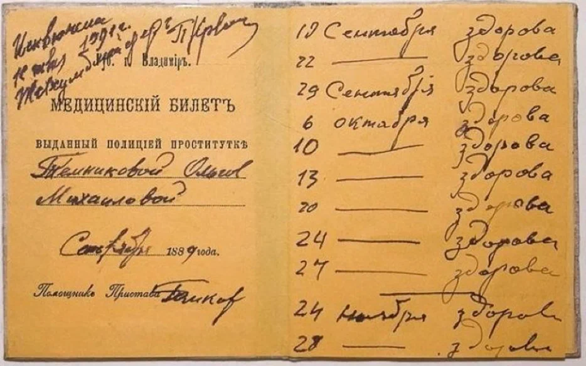 10 мая 1991 г.
Губ. г. Владиміръ.
МЕДИЦИНСКІЙ БИЛЕТЪ
ВЫДАННЫЙ ПОЛИЦІЕЙ ПРОСТИТУТКѢ
Темниковой Ольгѣ
Михайловой
Сентября 1889 года.
Помощникъ Пристава
19 Сентября здорова
22 — здорова
29 Сентября здорова
6 октября здорова
10 — здорова
13 — здорова
20 — здорова
24 — здорова
27 — здорова
24 ноября здорова
28 — здорова